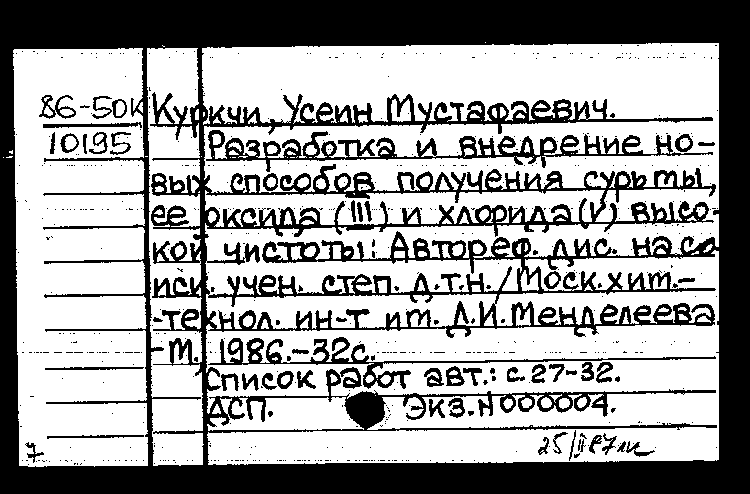 86-50К Куркчи, Усеин Мустафаевич.
10195 Разработка и внедрение но-
вых способов получения сурьмы,
ее оксида (III) и хлорида (V) высо-
кой чистоты: Автореф. дис. на со
иск. учен. степ. д.т.н. / Моск. хим.-
-технол. ин-т им. Д.И. Менделеева
-М. 1986.-32с.
Список работ авт.: с. 27-32.
ДСП. Экз. N 000004.
7 25/II 87